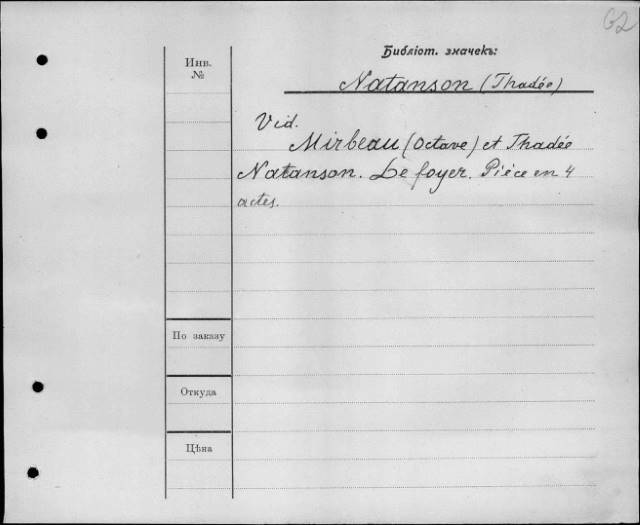 62
Библіот. значекъ:
Инв.
№
Natanson (Thadée)
Vid.
Mirbeau (Octave) et Thadée
Natanson. Le foyer. Piéce en 4
actes.
По заказу
Откуда
Цѣна